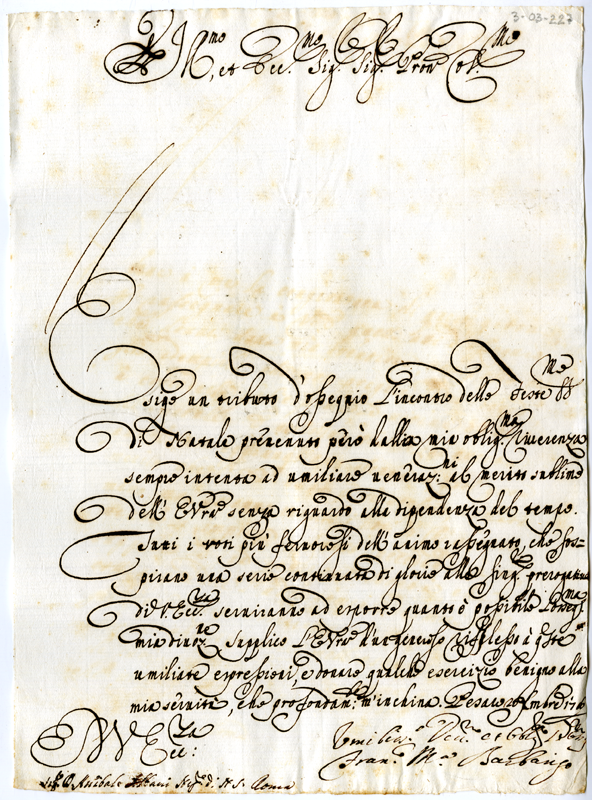 3-03-227
Ill.mo, et Ecc.mo Sig. Sig. Pron. Col.mo
Esige un tributo d'ossequio l'incontro delle Feste SS.me
di Natale prevenuto però dalla mia oblig.ma riverenza
sempre intenta ad umiliare veneraz.ni al merito sublime
dell'EVra senza riguardo alla dipendenza del tempo.
Tutti i voti più fervorosi dell'animo rassegnato, che sos-
pirano una serie continuata di glorie alle sing.
di V. Ecc.za serviranno ad esporre quanto è possibile
mia divoz.ne Supplico l'EVra d'un generoso riflesso à queste
umiliate espressioni, e donare qualche esercizio benigno alla
mia servitù, che profondam.te m'inchina. Pesaro
Di V. Ecc.za
Umiliss. Dev. et Obl.
Fran. M.a
Sig. D. Anibale Albani N. di N. S. Roma